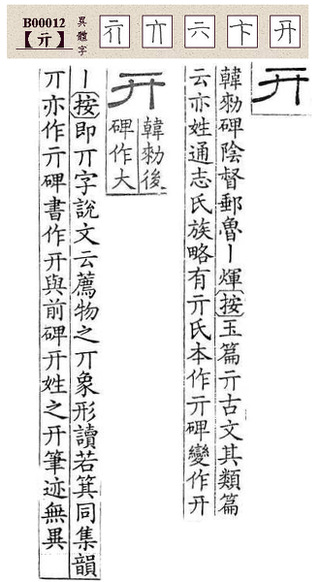 B00012
【亓】
異體字
六
卞
开
开
韓勑碑陰督郵魯丨煇按玉篇亓古文其類篇
云亦姓通志氏族略有亓氏本作亓碑變作开
开
韓勑後
碑作大
丨按即丌字說文云薦物之丌象形讀若箕同集韻
丌亦作亓碑書作开與前碑开姓之开筆迹無異